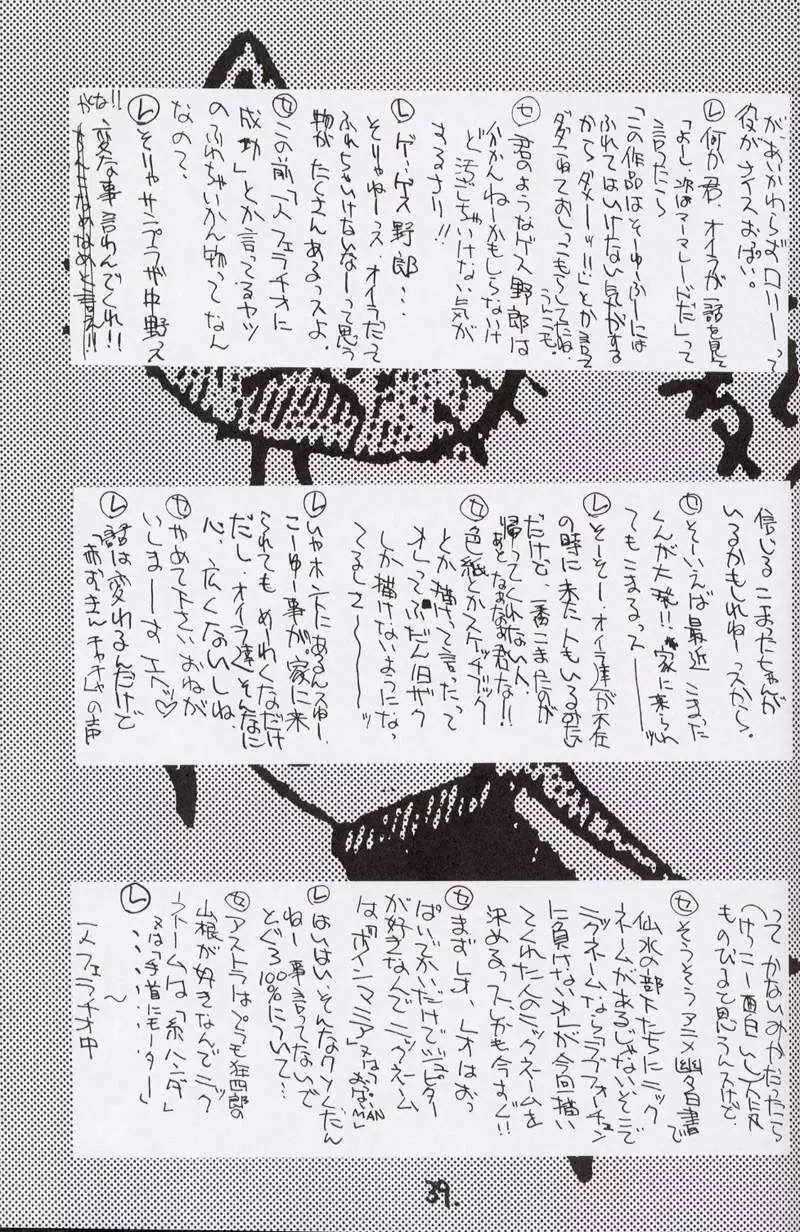 があいかわらずロリーって
役がナイスおっぱい。
㋹何か君、オイラが話を見て
「よし、次はマーマレードだ」って
言ったら
「この作品はそーゆーふーには
ふれてはいけない気がする
からダメーッ!!」とか言って
ダダこねておしっこもらしてたね。
㋝君のようなゲス野郎は
わかんねーかもしらないけ
ど汚しちゃいけない気が
するさり!!
㋹ゲ・ゲス野郎…
そりゃねーっス、オイラだって
ふれちゃいけないなーって思う
物がたくさんあるっスよ。
㋝この前「一人フェラチオに
成功」とか言ってるヤツ
のふれちゃいかん物ってなん
なの?
㋹そりゃサンプラザ中野っス
がな!!変な事言わんでくれ!!
信じるこまったちゃんが
いるかもしれねーっスから。
㋝そーいえば最近こまった
くんが大発!!家に来られ
てもこまるっスーーッ
㋹そーそー、オイラ達が不在
の時に来た人もいるみたい
だけど、一番こまったのが
帰ってくれない人、
㋝色紙とかスケッチブック
とか描けって言ったって
オレってふだん旧ザク
しか描けないようになっ
てるしさーーーッ
㋹いやホントにあるんスゆー、
こーゆー事が。家に来
られてもめーわくなだけ
だし、オイラ達そんなに
心、広くないしね。
㋝やめて下さいおねが
いしまーす エヘ♡
㋹話は変わるんだけど
「赤ずきんチャチャ」の声
ってかないみかだったら
(けっこー面白いし)人気
ものびるて思うんスけど、
㋝そうそうアニメ幽☆白書で
仙水の部下たちにニック
ネームがあるじゃないそこで
ニックネームならラブフォーチュン
に負けないオレが今回描い
てくれた人のニックネームを
決めるっスしかも今すぐ!!
㋝まずレオ、レオはおっ
ぱいでかいだけでジュピター
が好きなんでニックネーム
は「ボインマニア」又は「おっぱいMAN」
㋹はいはい、そんなクソくだん
ねー事言ってないで
とぐろ100%について…
㋝アストラはぷらも狂四郎の
山根が好きなんでニック
ネームは「糸ハンダ」
又は「手首にモーター」
㋹……
一人フェラチオ中
～
39.